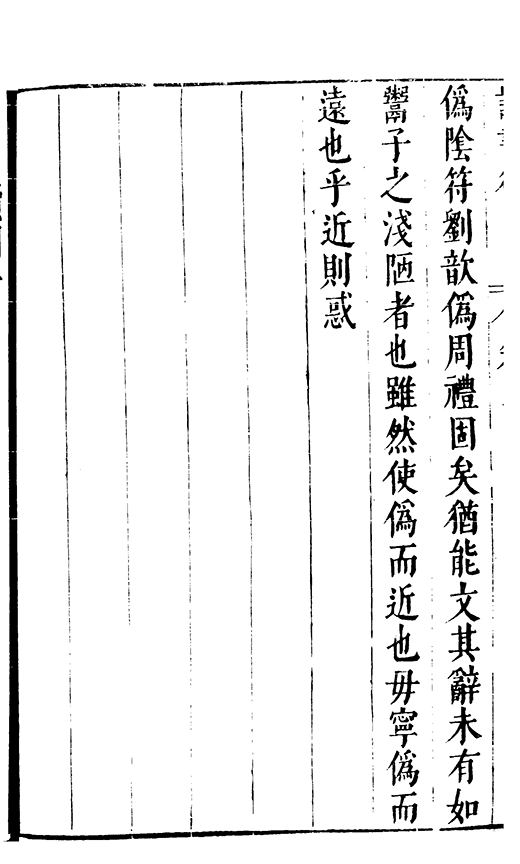 僞陰符劉歆僞周禮固矣猶能文其辭未有如
鬻子之淺陋者也雖然使僞而近也毋寧僞而
遠也乎近則惑